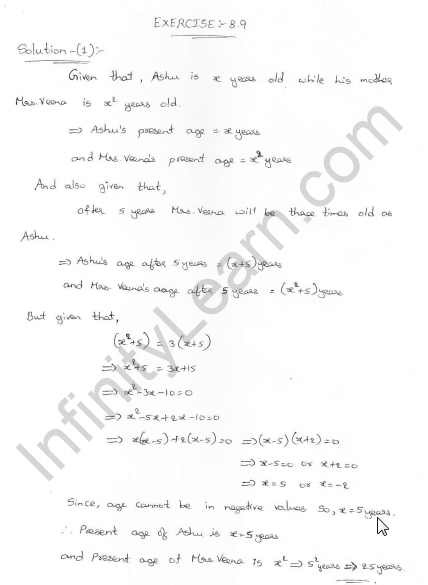 EXERCISE:- 8.9
Solution-(1):-
Given that, Ashu is x years old while his mother
Mrs. Veena is x² years old.
⇒ Ashu's present age = x years
and Mrs. Veena's present age = x² years
And also given that,
after 5 years Mrs. Veena will be three times old as
Ashu.
⇒ Ashu's age after 5 years = (x+5) years
and Mrs. Veena's age after 5 years = (x²+5) years.
But given that,
(x²+5) = 3(x+5)
⇒ x²+5 = 3x+15
⇒ x²-3x-10=0
⇒ x²-5x+2x-10=0
⇒ x(x-5)+2(x-5)=0 ⇒(x-5)(x+2)=0
⇒ x-5=0 or x+2=0
⇒ x=5 or x=-2
Since, age cannot be in negative values So, x=5 years.
∴ Present age of Ashu is x=5 years
and Present age of Mrs. Veena is x² ⇒ 5² years ⇒ 25 years.
InfinityLearn.com